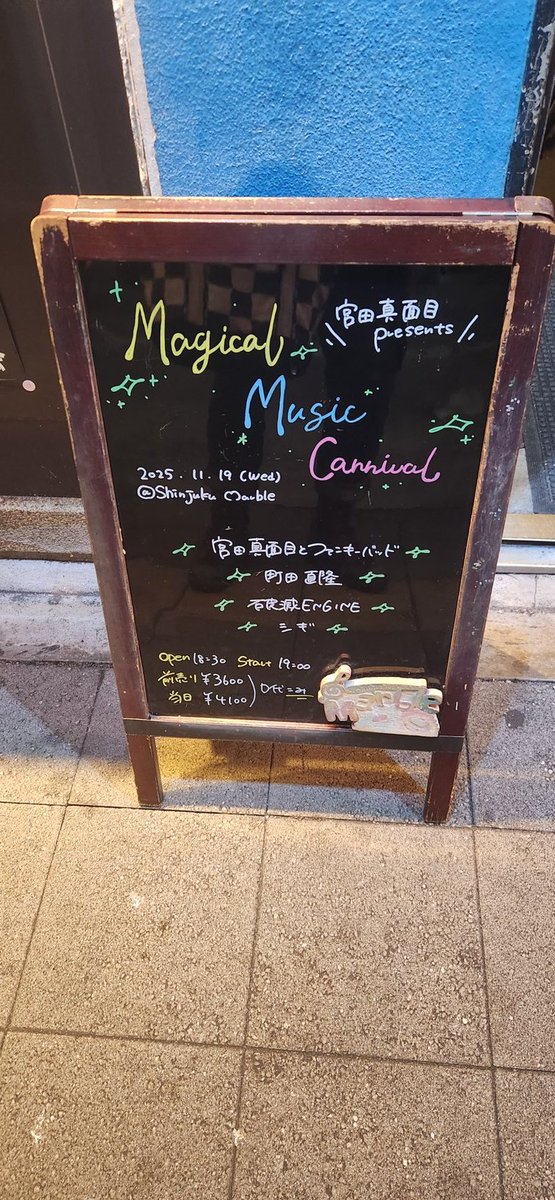 Magical
宮田真面目
presents
Music
Carnival
2025.11.19 (Wed)
@Shinjuku Marble
宮田真面目とファニーキーバッド
町田直隆
石炭滅ENGINE
シギ
Open 18:30 Start 19:00
前売り ¥3600
当日 ¥4100
Marble